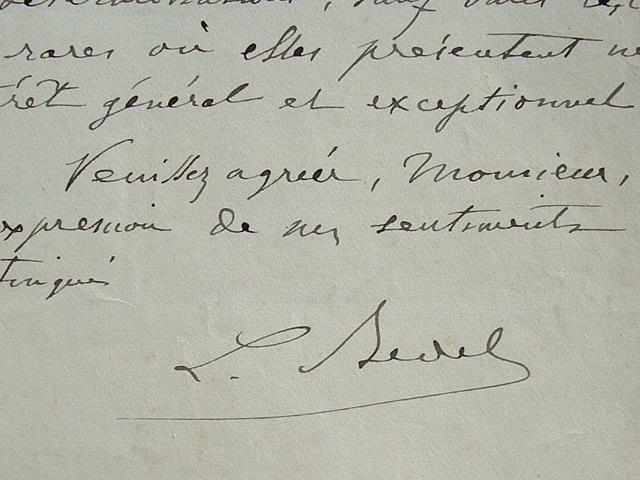 déterminations, sauf dans le
rares où elles présentent
térêt général et exceptionnel
Veuillez agréer, Monsieur,
expression de mes sentiments
tingués
L. Bedel